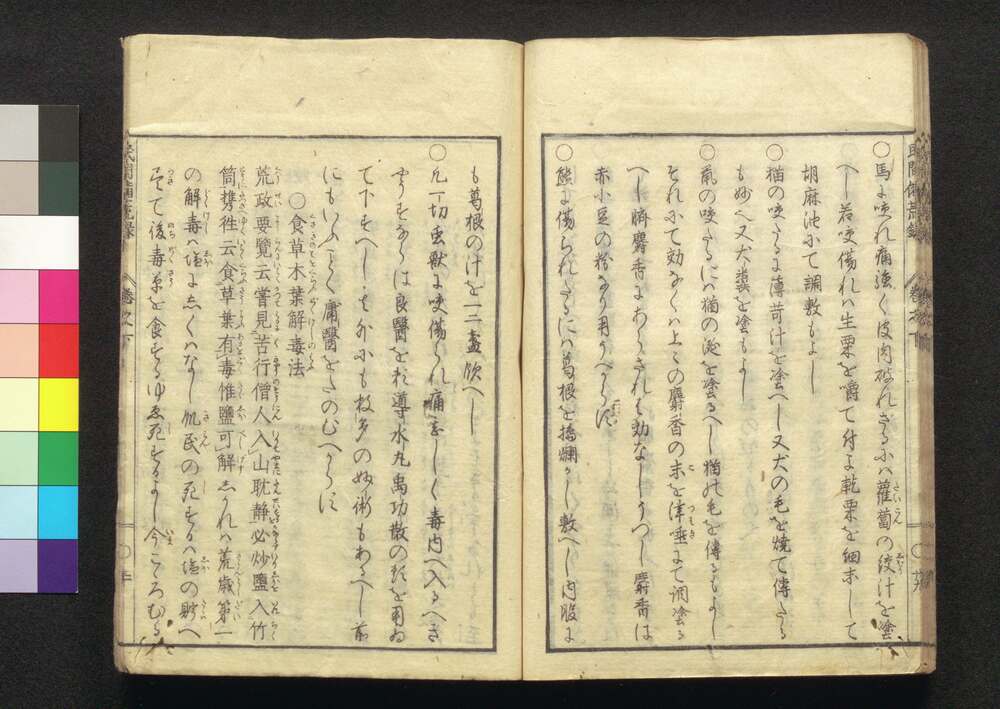 ○馬に咬れ痛強く皮肉破れざるには蘿蔔の絞汁を塗
へし若咬傷れハ生栗を嚼て付よ乾栗を細末して
胡麻油にて調敷もよし
○猫の咬たるは薄荷汁を塗へし又犬の毛を焼て傅たる
も妙へ又犬糞を塗もよし
○鼠の咬たるにハ猫の涎を塗るへし猫の毛を傅るもよし
それにて効なくハ上々の麝香の末を津唾にて調塗る
へし臍麝香にあらされは効なしうつし麝香は
赤小豆の粉なり用うへからす
○熊に傷られたるにハ葛根を搗爛かし敷へし内服に
も葛根の汁を一二盞飲へし
○凡一切虫獣に咬傷られ痛甚しく毒内へ入るへき
やうすならは良醫を招導水丸禹功散の類を用ゐ
て下すへし其外にも枚多の妙術もあるへし前
にもいふことく庸醫をたのむへからす
○食草木葉解毒法
荒政要覽云嘗見苦行僧人入山耽静必炒鹽入竹
筒携往云食草葉有毒惟鹽可解しかれハ荒歳第一
の解毒ハ塩にしくハなし飢民の死するハ塩の貯へ
尽て後毒草を食するゆゑ死するよし今こゝろむる
民間備荒録
巻之下